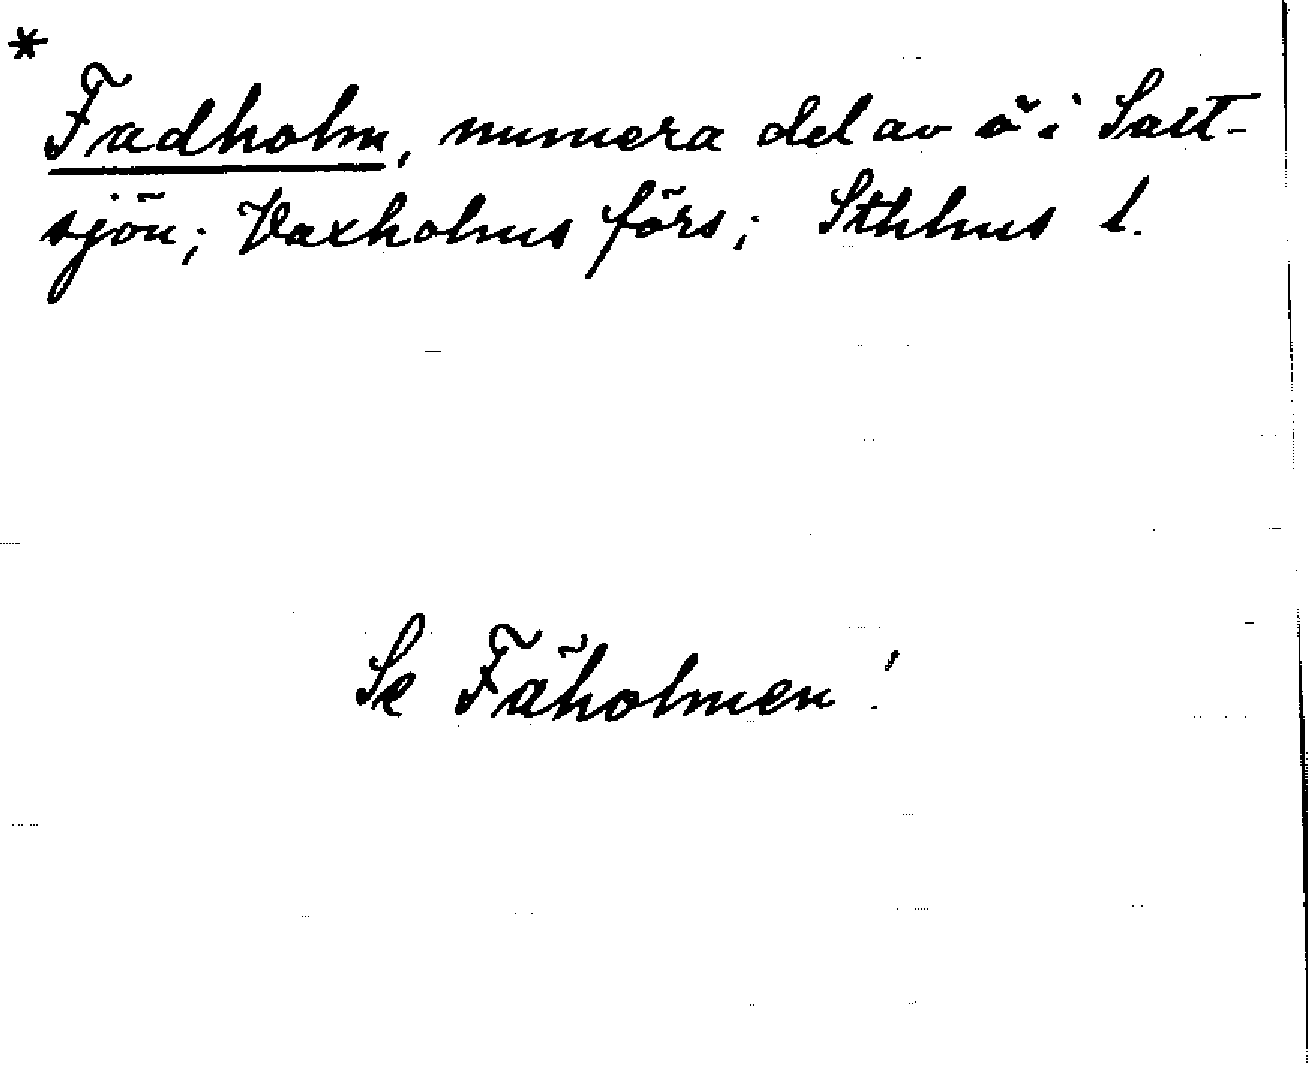 *
Fadholm, numera del av ö i Salt-
sjön; Vaxholms förs; Sthlms l.
Se Fäholmen!